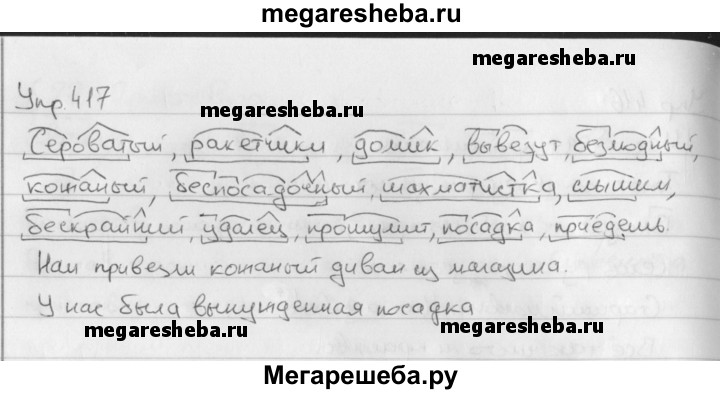 megaresheba.ru
megaresheba.ru
Упр. 417
megaresheba.ru
Сероватый, ракетчики, домик, вывезут, безлюдный,
кожаный, беспосадочный, шахматистка, слышим,
бескрайний, удалец, прошумит, посадка, приедешь.
Нам привезли кожаный диван из магазина.
У нас была вынужденная посадка
megaresheba.ru
megaresheba.ru
Мегарешеба.ру